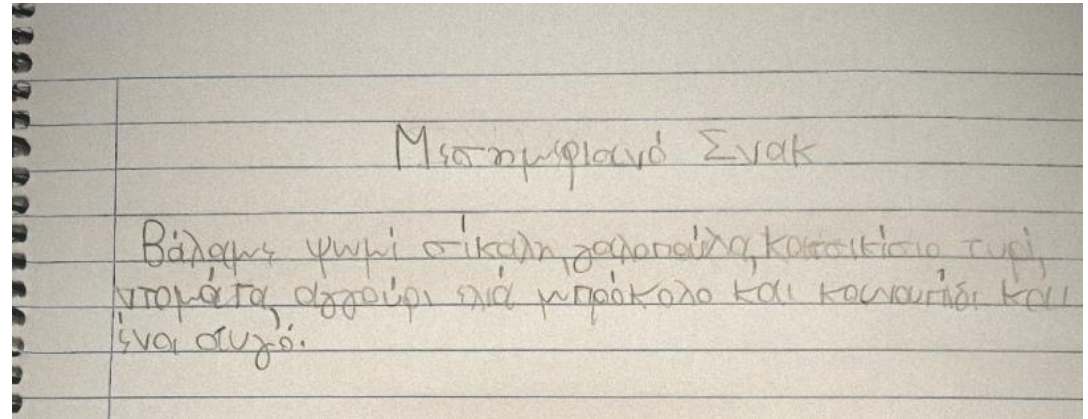 Μεσημεριανό Σνακ
Βάλαμε ψωμί σίκαλη, γαλοπούλα, κατσικίσιο τυρί,
ντομάτα, αγγούρι ελιά μπρόκολο και κουνουπίδι και
ένα αυγό.